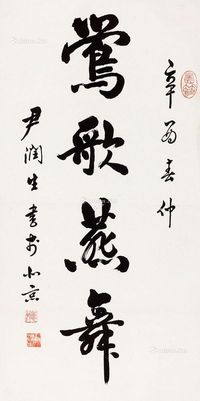 鶯歌燕舞
辛酉春仲
尹潤生書於北京